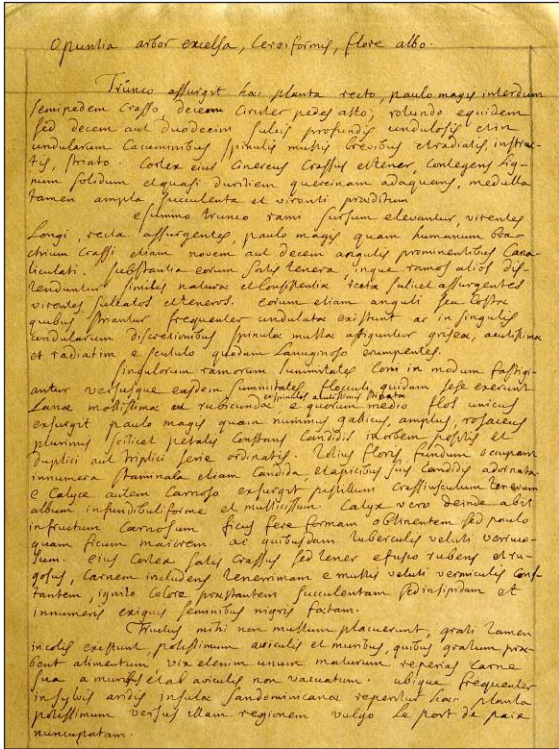 Opuntia arbor excelsa, Cereiformis, flore albo.
Trunco assurgit haec planta recto, paulo magis interdum
semipedem crasso decem circiter pedes alto, rotundo equidem
sed decem aut duodecim sulcis profundis undulosis et in
undularum cacuminibus spinulis multis brevibus et radiatis, instruc-
tis, striato. Cortex eius cinereus crassus et tener, contegens lig-
num solidum et quasi duritiem quercinam adaequans, medulla
tamen ampla succulenta et virenti praeditum
e summo trunco rami sursum elevantur, virentes
Longi, recta assurgentes, paulo magis quam humanum bra-
chium crassi etiam novem aut decem angulis prominentibus Cana-
liculati. substantia eorum satis tenera, inque ramos alios dis-
tenduntur similis naturae et Consistentiae recta scilicet assurgentes
virentes sulcatos et teneros. eorum etiam anguli seu Costae
quibus striantur frequenter undulatae existunt ac in singulis
undularum discretionibus spinulae multae affiguntur griseae, acutissimae
et radiatim e scutulo quodam Lanuginoso erumpentes.
Singulorum ramorum summitates Coni in modum fastigi-
antur versusque easdem summitates flocculi quidam sese exerunt
Lanae mollissimae ac rubicundae et spinulis acutissimis stipata e quorum medio flos unicus
exsurgit paulo magis quam nummus gallicus, amplus, rosaceus
plurimis scilicet petalis Constans Candidis in orbem positis et
duplici aut triplici serie ordinatis. Totius floris, fundum occupant
innumera staminula etiam candida et apicibus suis Candidis adornata
e Calyce autem Carnoso exsurgit pistillum Crassiusculum tenerum
album infundibuliforme et Calyx vero deinde abit
in fructum Carnosum ficus fere formam obtinentem sed paulo
quam ficum maiorem ac quibusdam tuberculis veluti verruco-
sum. eius Cortex satis Crassus sed tener e fusco rubens et ru-
gosus, Carnem includens tenerrimam e multis veluti vermiculis Cons-
tantem, ignito Colore praestantem succulentam sed insipidam et
innumeris exiguis seminibus nigris foetam.
Fructus mihi non multum placuerunt, grati tamen
incolis existunt, potissimum aviculis et muribus, quibus gratum prae-
bent alimentum, vix etenim unum maturum reperias carne
sua a muribus et ab aviculis non vacuatum. ubique frequenter
in sylvis aridis insulae Sandominicanae reperitur haec planta
potissimum versus illam regionem vulgo Le port de paix
nuncupatam.